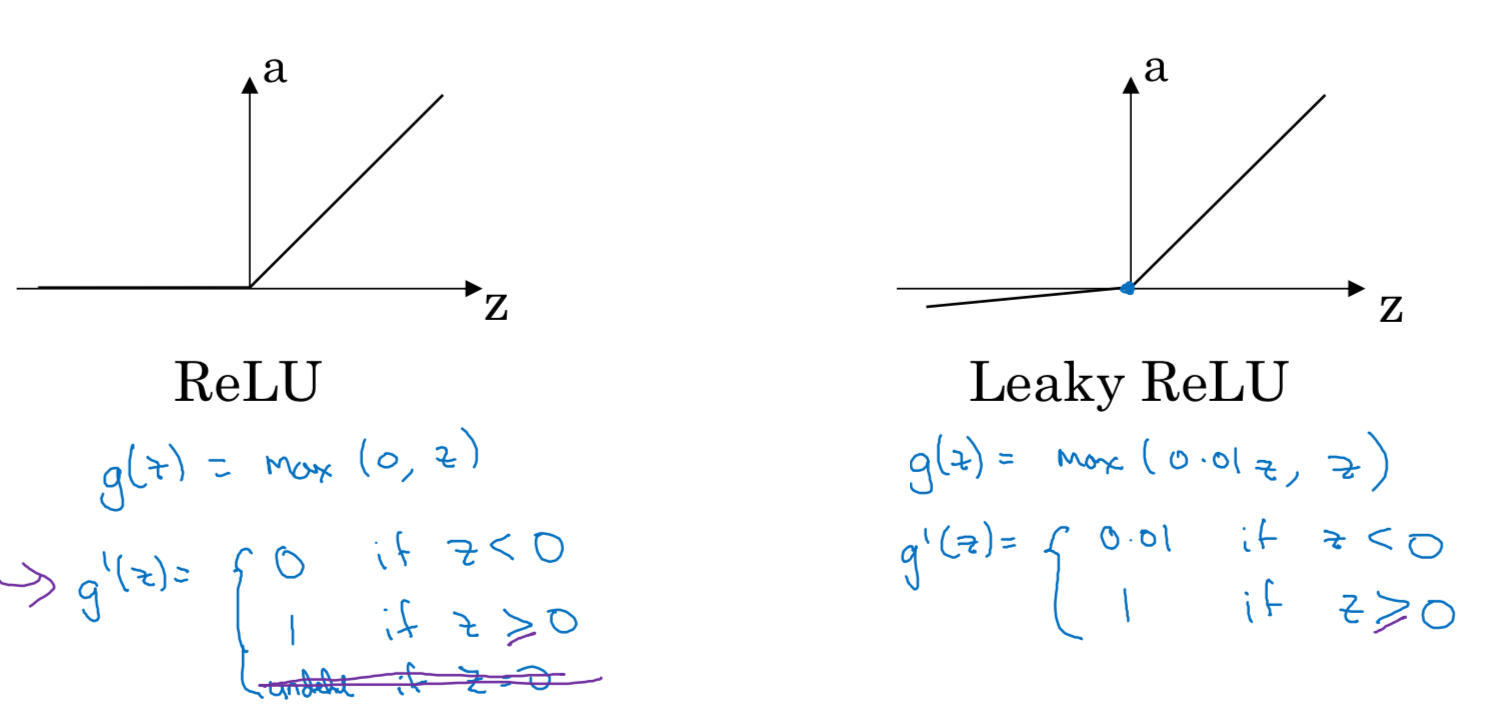 a
z
ReLU
g(z) = max (0, z)
g'(z) = { 0 if z < 0
1 if z ≥ 0
if z = 0
a
z
Leaky ReLU
g(z) = max (0.01z, z)
g'(z) = { 0.01 if z < 0
1 if z ≥ 0